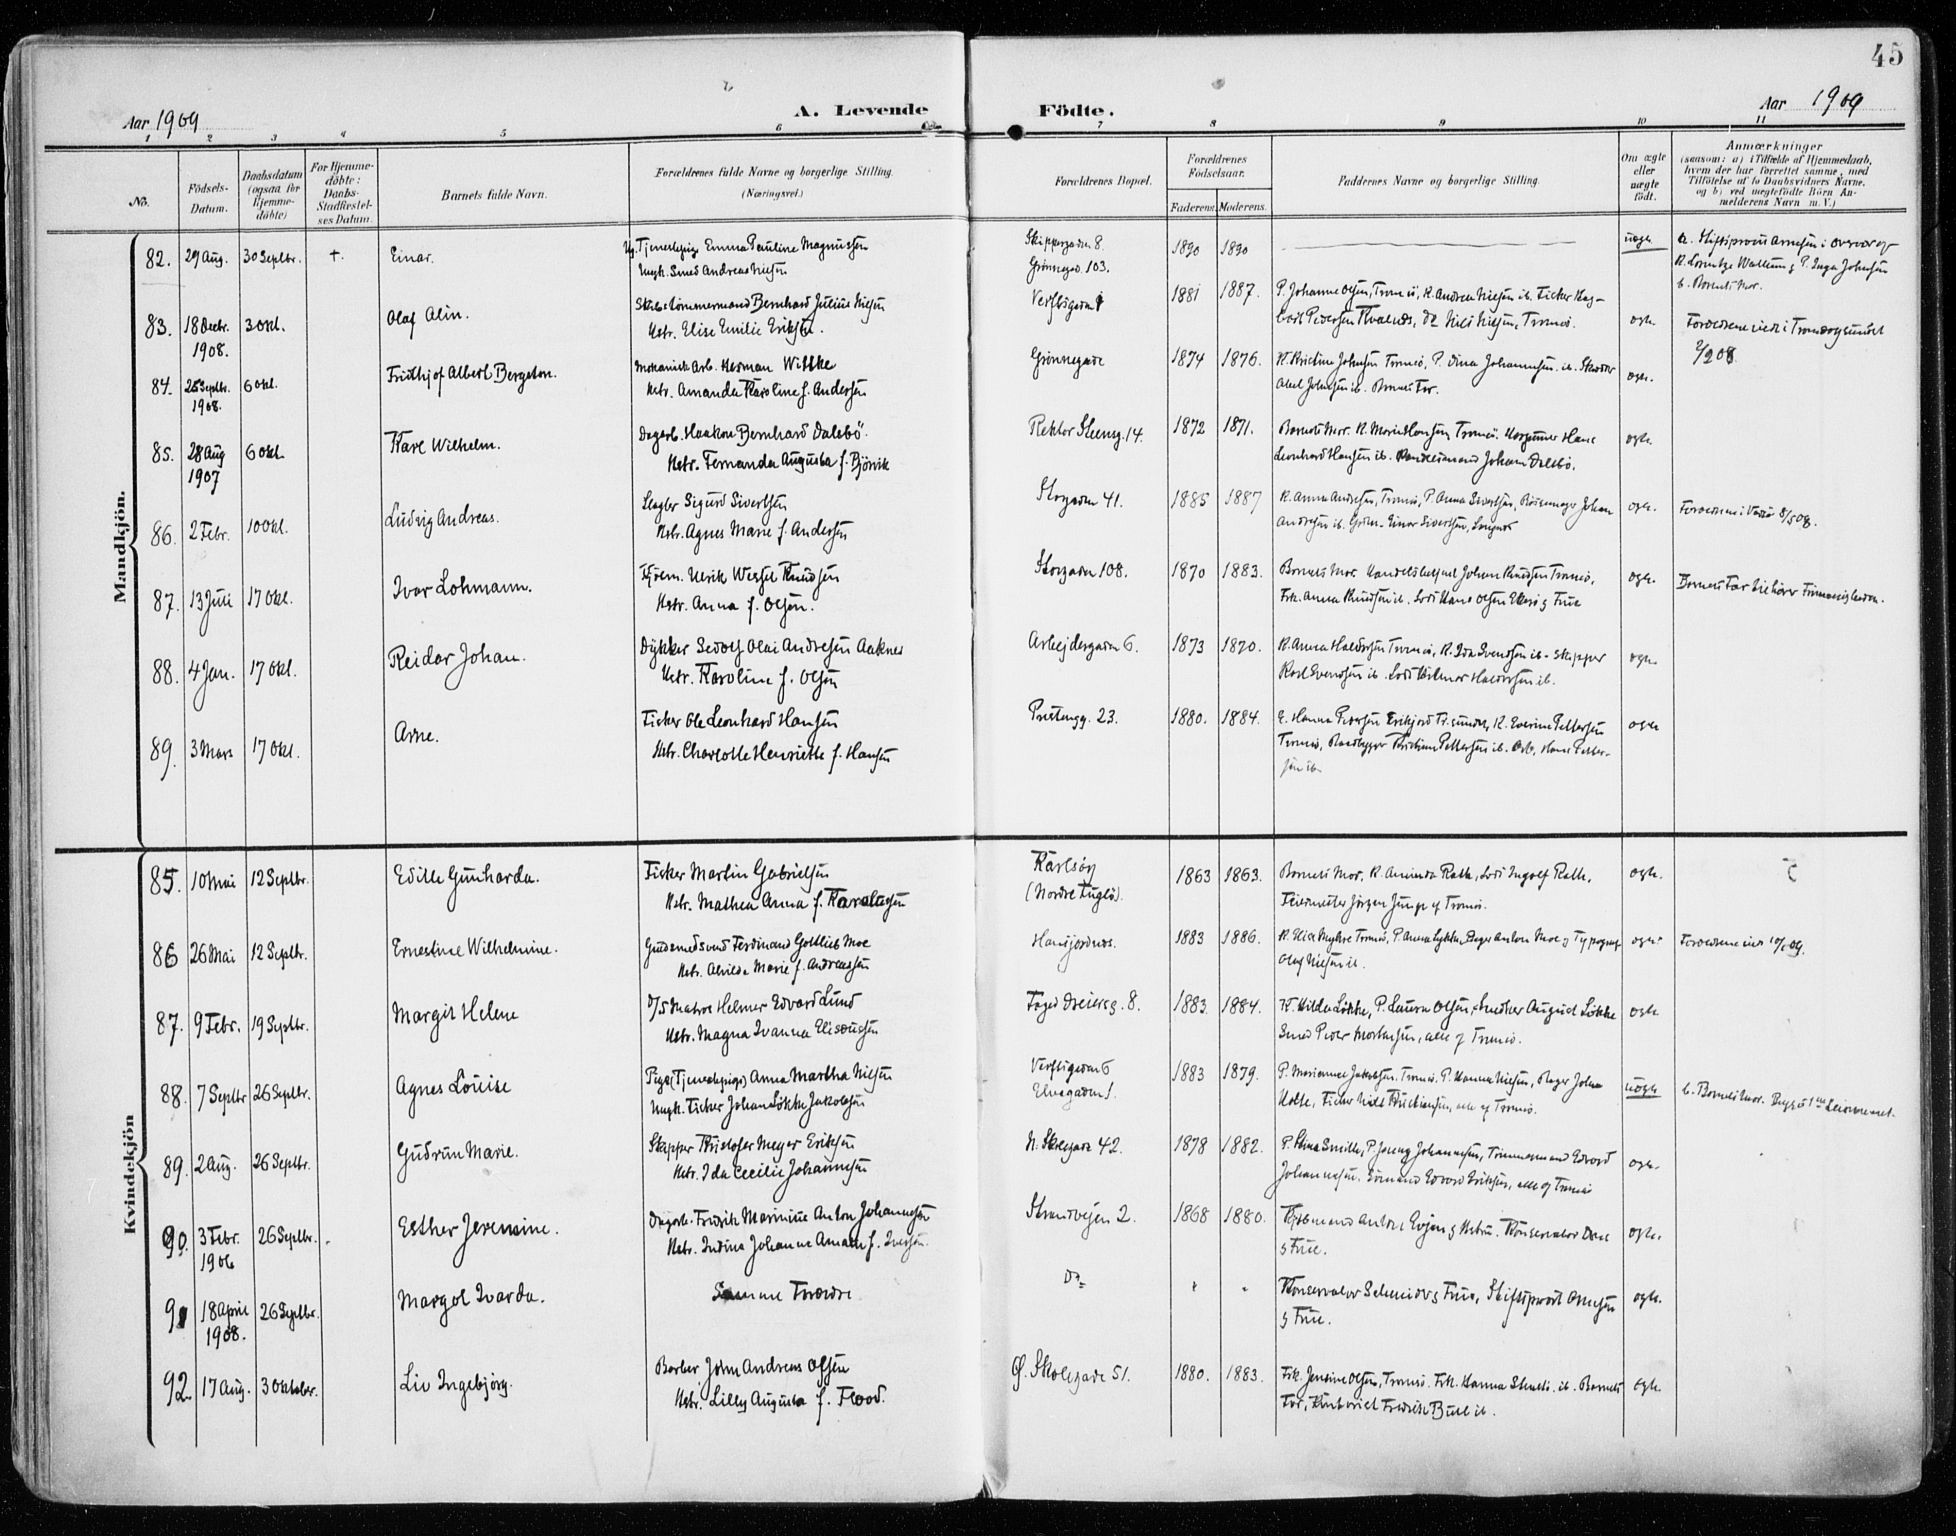 45
Aar 1909
A. Levende
Födte.
Aar 1909
1 2 3 4 5 6 7 8 9 10 11
No.
Födsels-
Datum.
Daabsdatum
(ogsaa for
Hjemme-
døbte)
For Hjemme-
döbte:
Daabs-
Stadfæstel-
ses Datum.
Barnets fulde Navn.
Forældrenes fulde Navne og borgerlige Stilling.
(Næringsvei.)
Forældrenes Bopæl.
Forældrenes
Födselsaar.
Faderens. Moderens.
Faddernes Navne og borgerlige Stilling.
Om ægte
eller
uægte
født.
Anmærkninger
(saasom: a) i Tilfælde af Hjemmedaab,
hvem der har forrettet samme, med
Tilføielse af to Daabsvidners Navne,
og b) ved uægtefödte Börn An-
melderens Navn m. V.)
Mandkjön.
82. 29 Aug. 30 Septbr. +. Einar. Ug. Tjenestepige Emma Pauline Magnussen
Ungk. Smed Andreas Nilsen
Skippergaden 8.
Grønnegad 103.
1890 1890 uægte
b. Barnets Mor.
83. 18 Decbr.
1908.
3 Okt. Olaf Alin. Skibstömmermand Bernhard Julius Nilsen
Hstr. Elise Emilie Eriksen.
Verftsgaden
1881 1887. P. Johanne Olsen, Tromsö, K. Andrea Nilsen ib. Fisker
Nils Nilsen, Tromsö.
ægte.
84. 25 Septbr.
1908.
6 Okt. Fridthjof Albert Bergeton. Mekanisk Arb. Herman Wittke
Hstr. Amanda Karoline f. Andersen
Grønnegade
1874 1876. K. Kristine Johnsen Tromsö, P. Dina Johannesen ib. Skræder
Johnsen ib. Barnets Far.
ægte.
85. 28 Aug
1907
6 Okt. Karl Wilhelm. Dagarb. Haakon Bernhard Dalsbö.
Hstr. Fernanda Augusta f. Björvik
Rektor Steensg. 14.
1872 1871. Barnets Mor. K. Marie Hansen Tromsö. Hans
Leonhard Hansen ib. Johan Dalsbö.
ægte.
86. 2 Febr. 10 Okt. Ludvig Andreas. Slagter Sigurd Sivertsen
Hstr. Agnes Marie f. Andersen
Storgaden 41.
1885 1887 K. Anna Andersen, Tromsö, P. Anna Sivertsen, Johan
Andersen ib. Einar Sivertsen,
ægte. Forældrene i Vadsö 8/5 08.
87. 13 Juli 17 Okt. Ivar Lohmann. Ulrik Wessel Knudsen
Hstr. Anna f. Olsen.
Storgaden 108.
1870 1883. Barnets Mor. Handelsbetjent Johan Knudsen Tromsö,
Frk. Anna Knudsen ib. Lods Hans Olsen & Frue
ægte.
88. 4 Jan. 17 Okt. Reidar Johan. Dykker Sedolf Olai Andresen Aaknes
Hstr. Karoline f. Olsen
Arbeidergaden 6.
1873 1870. K. Anna Haldorsen Tromsö, K. Ida Svendsen ib. Skipper
Karl Svendsen ib. Lods Hilmar Haldorsen ib.
ægte.
89. 3 Mars 17 Okt. Arne. Fisker Ole Leonhard Hansen
Hstr. Charlotte Henriette f. Hansen
Prestengg. 23.
1880. 1884. Hanna Pedersen Erikjord K. Severine Pettersen
Tromsö, Baadbygger Kristian Pettersen ib. Arb. Hans Petter-
sen ib.
ægte
Kvindekjön
85. 10 Mai 12 Septbr. Edille Gunharda. Fisker Martin Gabrielsen
Hstr. Mathea Anna f.
Karlsöy
(Nordre Fuglö).
1863 1863. Barnets Mor, K. Aminda Rath, Lods Ingolf Rath,
Feiermester Jörgen af Tromsö.
ægte.
86 26 Mai 12 Septbr. Ernestine Wilhelmine. Guldsmedsvend Ferdinand Gottlieb Moe
Hstr. Alvilda Marie f. Andreassen
Hansjordnes.
1883 1886. Tromsö, P. Anna Lykke, Bager Anton Moe & Typograf
Olaf Nilsen ib.
ægte
87. 9 Febr. 19 Septbr. Margit Helene D/S Matros Helmer Edvard Lund
Hstr. Magna Ivanna Eliseussen
Foged Dreiersg. 8.
1883. 1884. K. Hilda Løkke, P. Laura Olsen, Snedker August Løkke
Smed Peder Mortensen, alle af Tromsö.
ægte
88. 7 Septbr 26 Septbr. Agnes Louise Pige (Tjenestepige) Anna Martha Nilsen
Ungk. Fisker Johan Løkke Jakobsen
Verftsgaden 6
Elvegaden 1.
1883 1879. P. Marianne Jakobsen, Tromsö. P. Hanna Nilsen, Bager Johan
Holte, Fisker Nils Kristiansen, alle af Tromsö.
uægte b. Barnets Mor.
89. 2 Aug. 26 Septbr. Gudrun Marie. Skipper Kristofer Meyer Eriksen
Hstr. Ida Cecilie Johannesen
N. Skolegade 42.
1878 1882. P. Stina Smith, P. Jenny Johannesen, Tømmermand Edvard
Johannesen. Edvard Eriksen, alle af Tromsö
ægte.
90. 3 Febr.
1906
26 Septbr. Esther Jeremine. Dagarb. Fredrik Marinius Anton Johannesen
Hstr. Indina Johanne Amalie f. Iversen.
Strandvejen 2.
1868 1880. Kjöbmand Anton Evjen & Hustru. Konservator
& Frue.
ægte.
91 18 April
1908.
26 Septbr. Margot Ivarda. Samme Forældre
Do
" " Konservator Schneider & Frue, Stiftsprovst Arnesen
& Frue.
ægte.
92. 17 Aug. 3 Oktober. Liv Ingebjörg. Barber John Andreas Olsen
Hstr. Lilly Augusta f. Flood.
Ø. Skolegade 51.
1880. 1883. Frk. Jensine Olsen, Tromsö. Frk. Hanna ib. Barnets
Far, Fredrik Bull ib.
ægte.